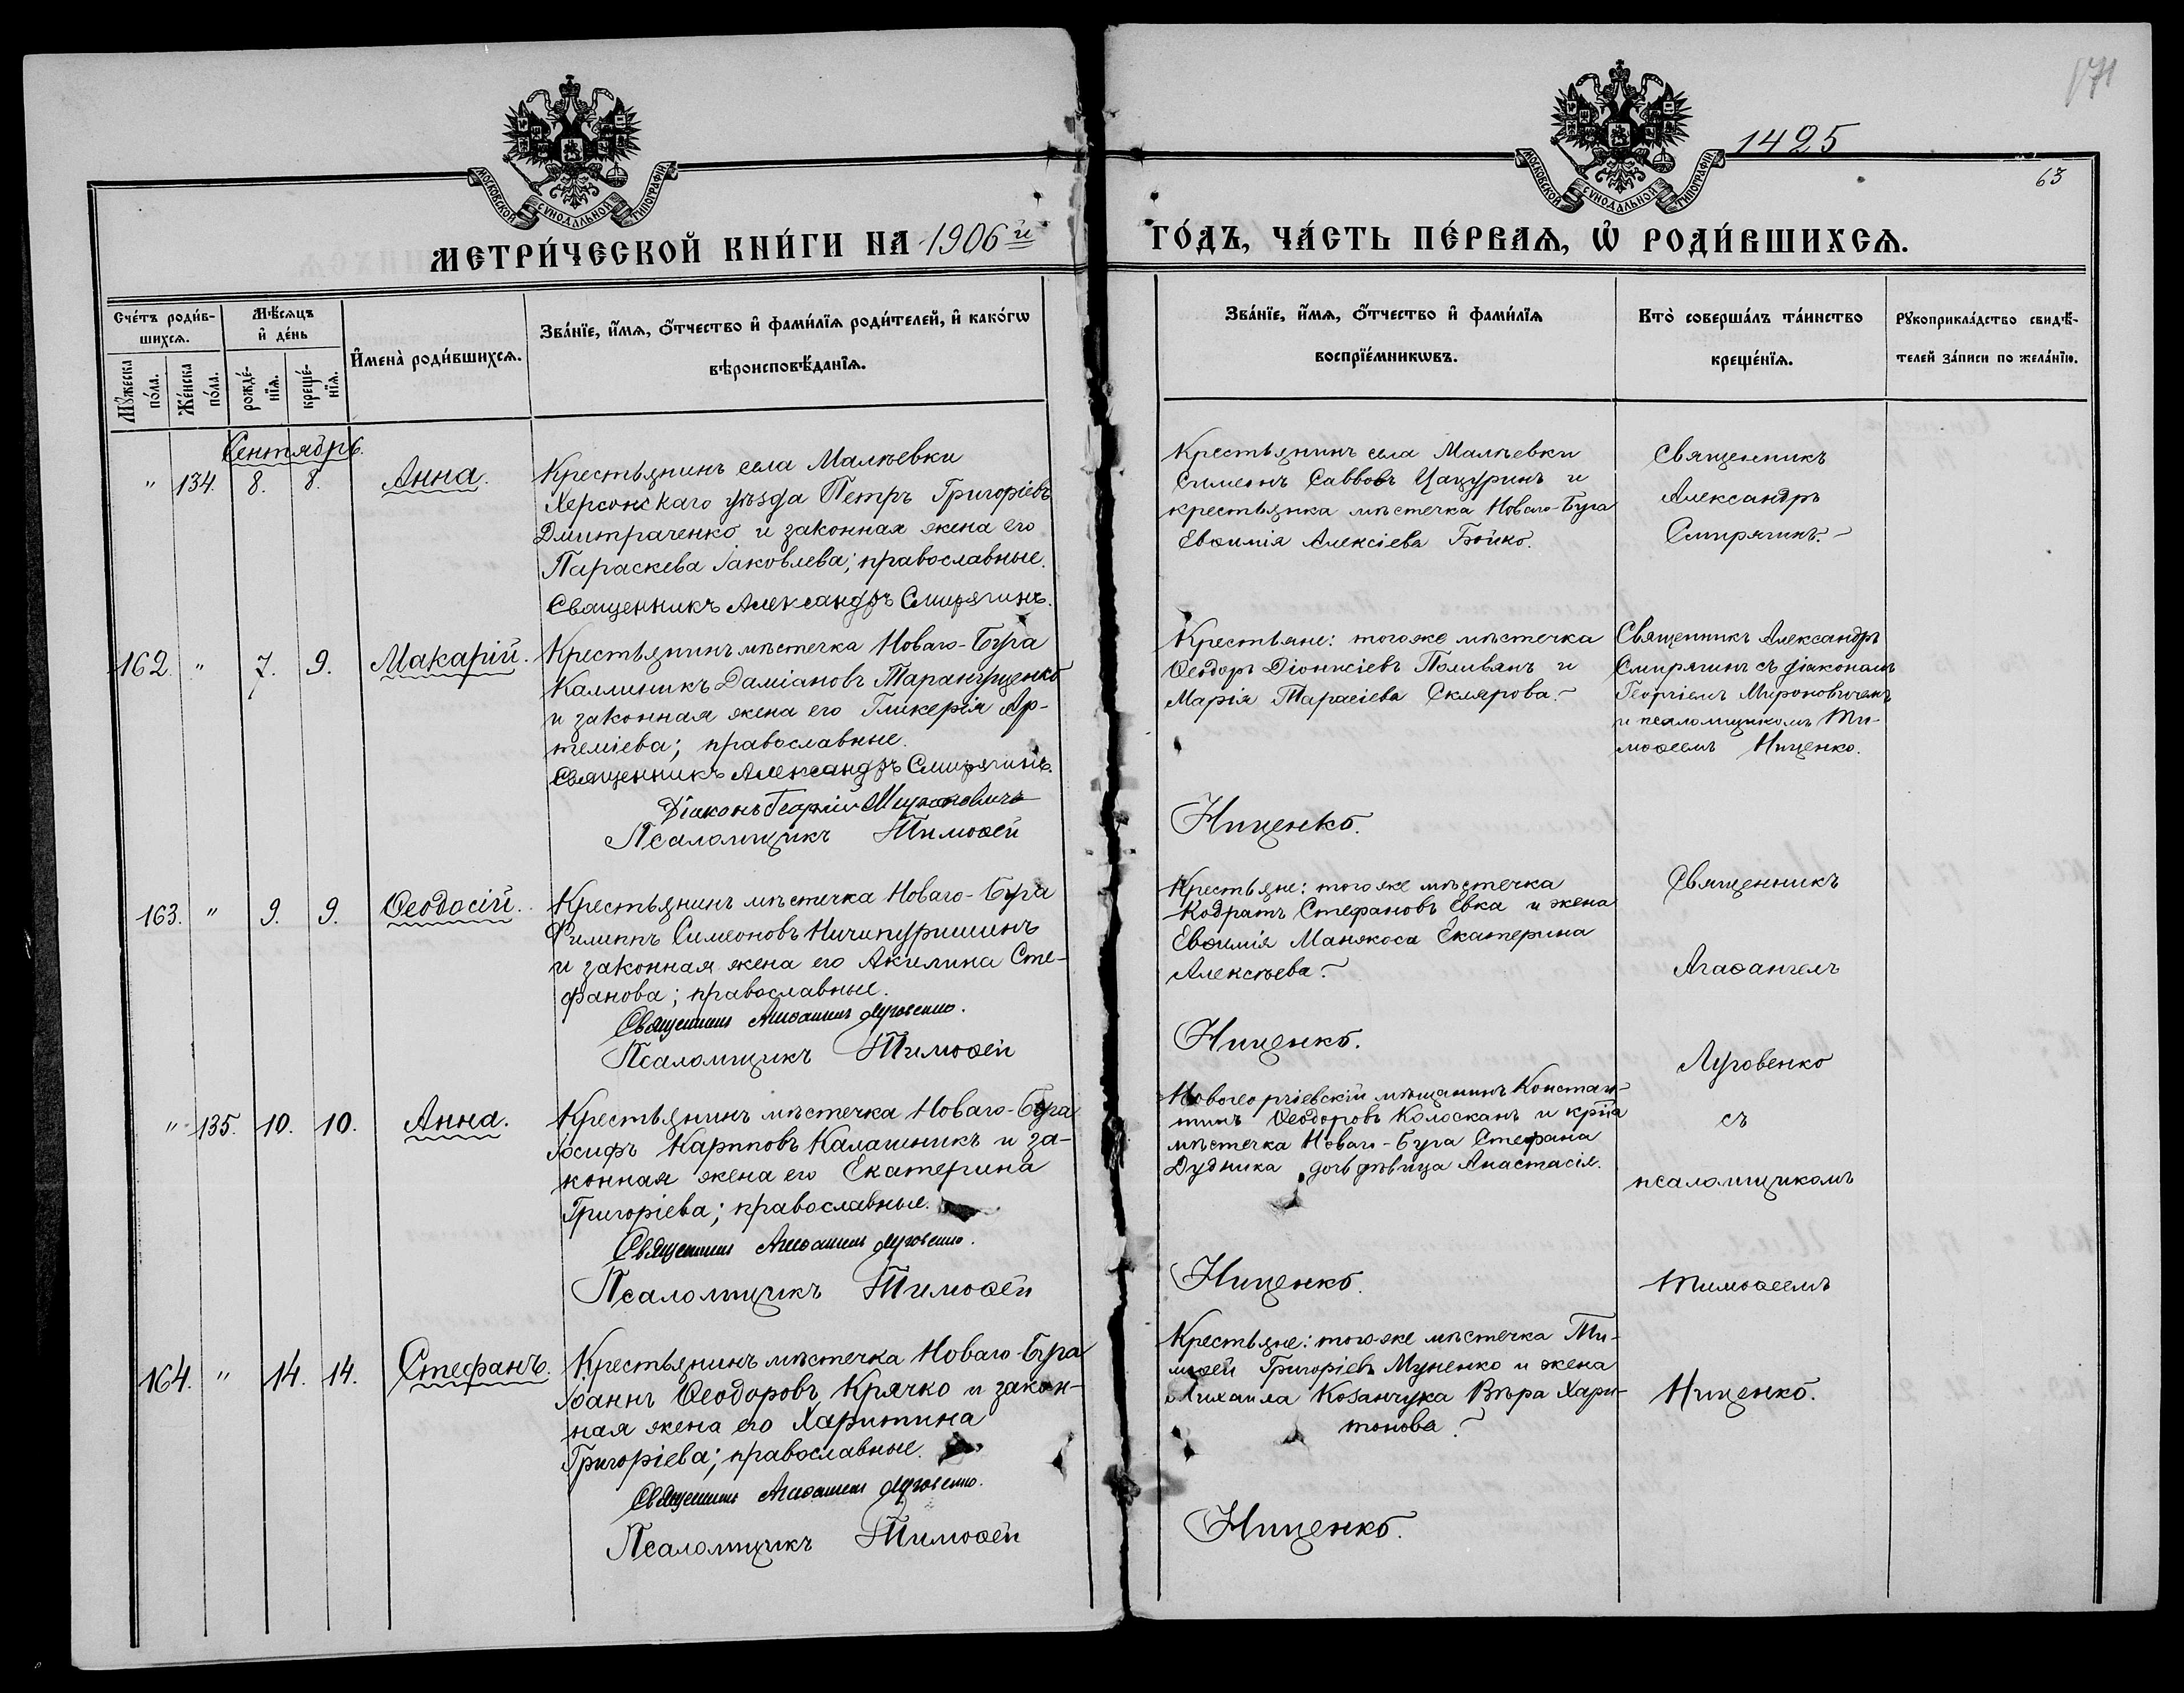 171
1425
63
МОСКОВСКОЙ СѴНОДАЛЬНОЙ ТИПОГРАФІИ
МОСКОВСКОЙ СѴНОДАЛЬНОЙ ТИПОГРАФІИ
МЕТРИ́ЧЕСКОЙ КНИ́ГИ НА 1906й
ГО́ДЪ, ЧА́СТЬ ПЕ́РВАѦ, Ѡ҆ РОДИ́ВШИХСѦ.
Сче́тъ роди́в-
шихсѧ.
Мꙋ́жеска по́ла.
Же́нска по́ла.
Мѣ́сѧцъ
и҆ де́нь
рожде́-
нїѧ.
креще́-
нїѧ.
И҆мена̀ роди́вшихсѧ.
Зва́нїе, и҆́мѧ, ѻ҆́тчество и҆ фами́лїѧ роди́телей, и҆ како́гѡ
вѣроисповѣ́данїѧ.
Зва́нїе, и҆́мѧ, ѻ҆́тчество и҆ фами́лїѧ
воспрїе́мникѡвъ.
Кто̀ соверша́лъ та́инство
креще́нїѧ.
Рꙋкоприкла́дство свидѣ́-
телей за́писи по жела́нїю.
Сентябрь.
" 134. 8. 8. Анна.
Крестьянинъ села Малѣевки
Херсонскаго уѣзда Петръ Григоріевъ
Дмитраченко и законная жена его
Параскева Іаковлева; православные.
Священникъ Александръ Смирягинъ.
Крестьянинъ села Малѣевки
Симеонъ Саввовъ Цацуринъ и
крестьянка мѣстечка Новаго-Буга
Евѳимія Алексіева Бойко.
Священникъ
Александръ
Смирягинъ.
162. " 7. 9. Макарій.
Крестьянинъ мѣстечка Новаго-Буга
Каллиникъ Даміановъ Таранущенко
и законная жена его Гликерія Ар-
теміева; православные.
Священникъ Александръ Смирягинъ.
Діаконъ Георгій Мироновичъ
Псаломщикъ Тимоѳей
Крестьяне: того же мѣстечка
Ѳеодоръ Діонисіевъ Поливянъ и
Марія Тарасіева Склярова.
Ниценко.
Священникъ Александръ
Смирягинъ съ діакономъ
Георгіемъ Мироновичемъ
и псаломщикомъ Ти-
моѳеемъ Ниценко.
163. " 9. 9. Ѳеодосій.
Крестьянинъ мѣстечка Новаго-Буга
Филиппъ Симеоновъ Ничипуришинъ
и законная жена его Акилина Сте-
фанова; православные.
Священникъ Агаѳангелъ Луговенко.
Псаломщикъ Тимоѳей
Крестьяне: того же мѣстечка
Кодратъ Стефановъ Евка и жена
Евѳимія Манякоса Екатерина
Алексѣева.
Ниценко.
Священникъ
Агаѳангелъ
Луговенко
съ
псаломщикомъ
Тимоѳеемъ
Ниценко.
" 135. 10. 10. Анна.
Крестьянинъ мѣстечка Новаго-Буга
Іосифъ Карповъ Калашникъ и за-
конная жена его Екатерина
Григоріева; православные.
Священникъ Агаѳангелъ Луговенко.
Псаломщикъ Тимоѳей
Новогеоргіевскій мѣщанинъ Констан-
тинъ Ѳеодоровъ Колосканъ и кр-на
мѣстечка Новаго-Буга Стефана
Дудника дочь дѣвица Анастасія.
Ниценко.
164. " 14. 14. Стефанъ.
Крестьянинъ мѣстечка Новаго-Буга
Іоаннъ Ѳеодоровъ Крячко и закон-
ная жена его Харитина
Григоріева; православные.
Священникъ Агаѳангелъ Луговенко.
Псаломщикъ Тимоѳей
Крестьяне: того же мѣстечка Ти-
моѳей Григоріевъ Муненко и жена
Михаила Козанчука Вѣра Хари-
тонова.
Ниценко.